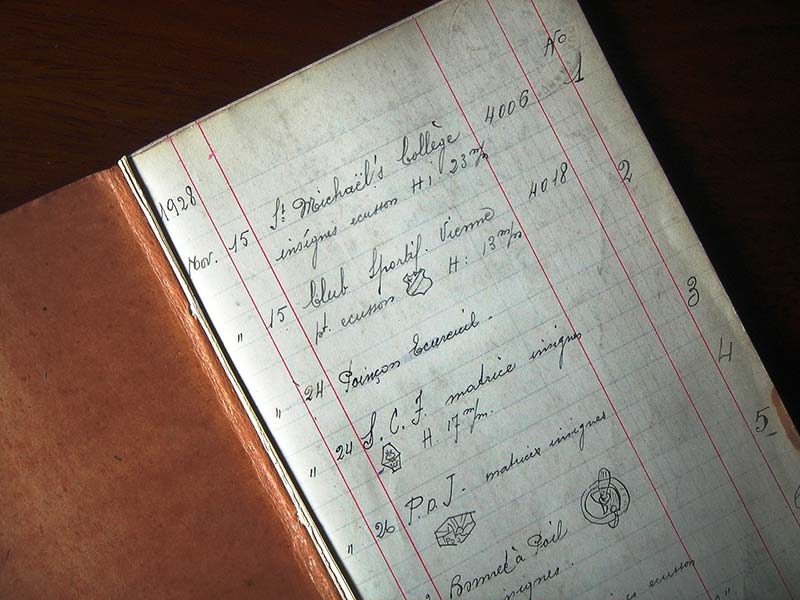 No
1928
Nov. 15 St Michaël's Collège 4006 1
insignes ecusson H: 23 m/m
" 15 Club Sportif. Vienne 4018 2
pt ecusson H: 13 m/m
" 24 Poinçon Ecureuil. 3
" 24 S. C. F. matrice insigne 4
H. 17 m/m.
" 26 P. D. J. matrices insignes 5
Bonnet à Poil
insignes.
insignes ecusson